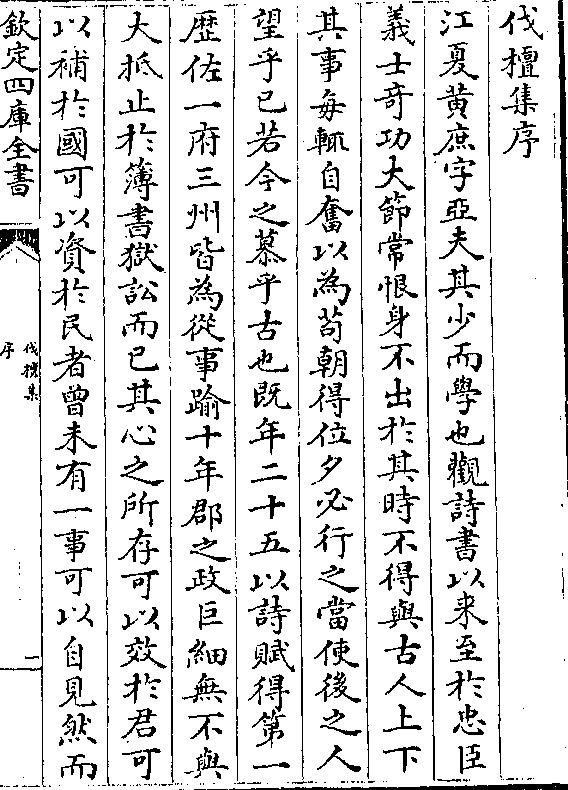 伐檀集序
江夏黃庶字亞夫其少而學也觀詩書以来至於忠臣
義士奇功大節常恨身不出於其時不得與古人上下
其事每輒自奮以為苟朝得位夕必行之當使後之人
望乎已若今之慕乎古也既年二十五以詩賦得第一
歴佐一府三州皆為從事踰十年郡之政巨細無不與
大抵止於簿書獄訟而已其心之所存可以效於君可
以補於國可以資於民者曾未有一事可以自見然而
欽定四庫全書
伐檀集
序
一